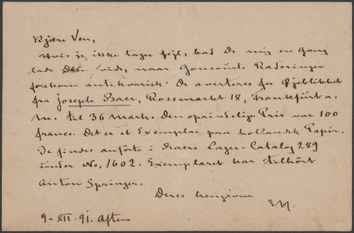 Kjære Ven,
Hvis jeg ikke tager fejl, bad De mig en Gang
lade Dem vide, naar Goncourts Raderinger
forekom antikvarisk. De averteres for Øjeblikket
fra Joseph Baer, Rossmarkt 18, Frankfurt a.
M. til 36 Mark. Den oprindelige Pris var 100
francs. Det er et Exemplar paa hollandsk Papir.
De findes anførte i Baers Lager-Catalog 289
under No. 1602. Exemplaret har tilhørt
Anton Springer.
Deres hengivne
9-XII-91. Aften